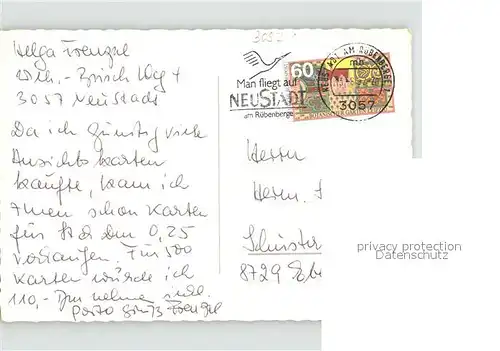 Helga Frenzel
Wilh.-Busch Weg 4
3057 Neustadt
Da ich günstig viele
Ansichtskarten
kaufte, kann ich
Ihnen schon Karten
für St a Dm 0,25
Für 500
Karten würde ich
110,- Dm nehmen
Porto Gruß Frenzel
Man fliegt auf
NEUSTADT
am Rübenberge
60
NEUSTADT AM RÜBENBERGE 1
mb
3057
Herrn
Herm.
8729
privacy protection
Datenschutz